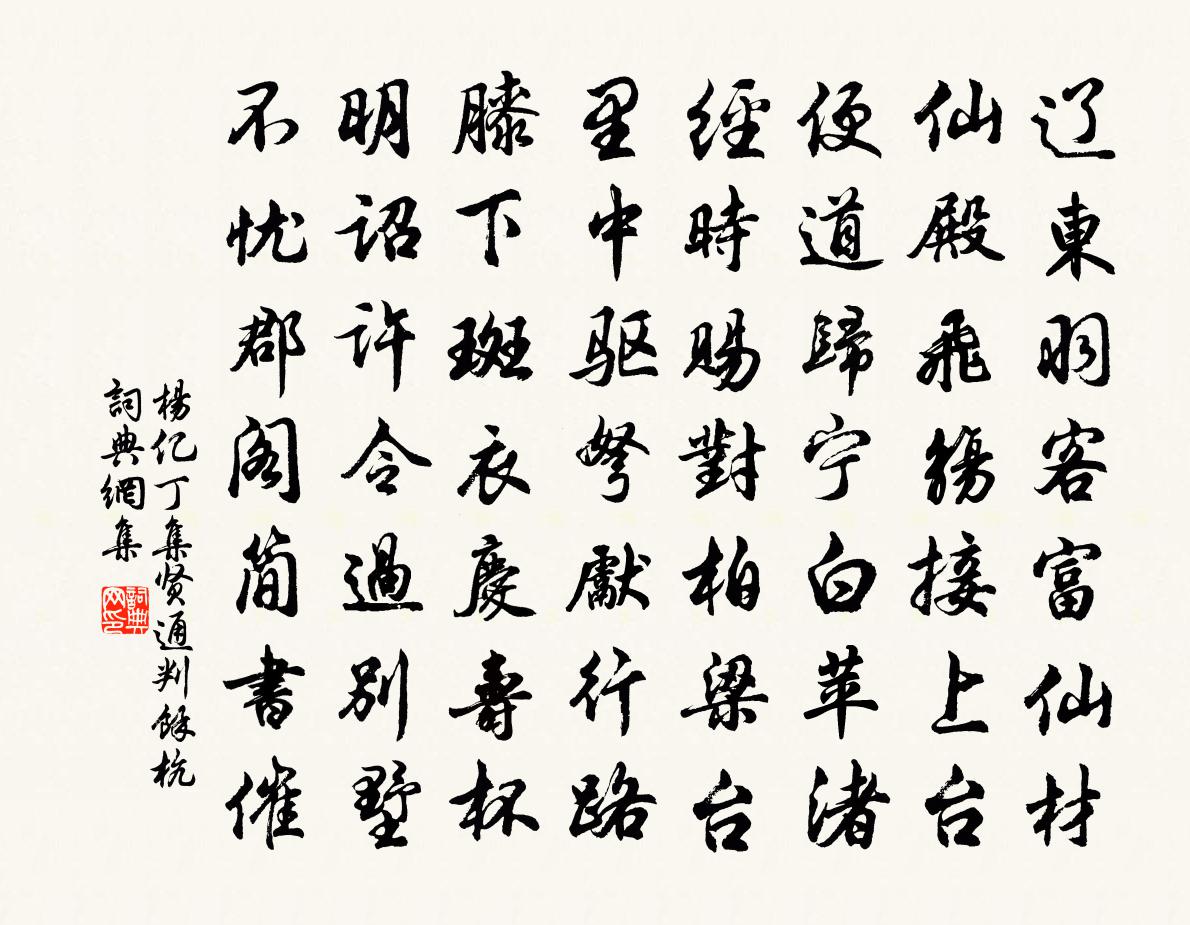 辽東羽客富仙材
仙殿飛觴接上台
便道歸宁白苹渚
經時賜對柏梁台
里中驱弩獻行路
膝下斑衣慶壽杯
明詔許令過別墅
不忧郡阁简書催
楊亿丁集贤通判餘杭
詞典網集
詞典网印